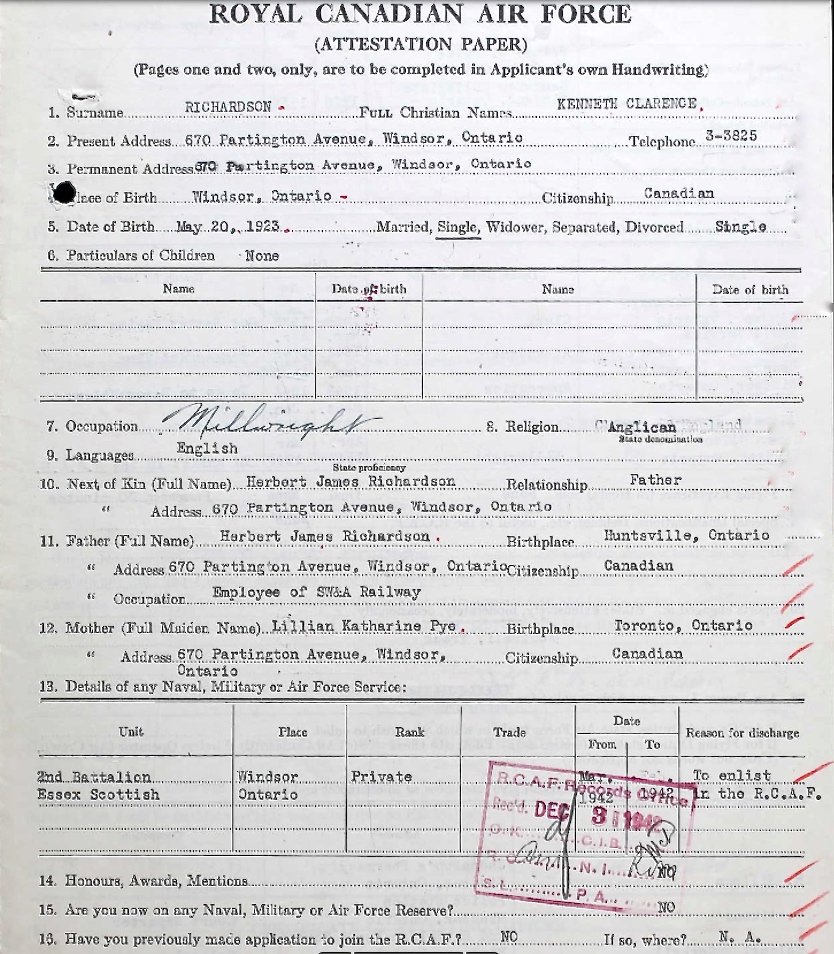 ROYAL CANADIAN AIR FORCE
(ATTESTATION PAPER)
(Pages one and two, only, are to be completed in Applicant's own Handwriting)
1. Surname RICHARDSON Full Christian Names KENNETH CLARENCE.
2. Present Address 670 Partington Avenue, Windsor, Ontario Telephone 3-3825
3. Permanent Address 670 Partington Avenue, Windsor, Ontario
Place of Birth Windsor, Ontario Citizenship Canadian
5. Date of Birth May 20, 1923. Married, Single, Widower, Separated, Divorced Single
6. Particulars of Children None
Name Date of birth Name Date of birth
7. Occupation Millwright 8. Religion Anglican
State denomination
9. Languages English
State proficiency
10. Next of Kin (Full Name) Herbert James Richardson Relationship Father
" Address 670 Partington Avenue, Windsor, Ontario
11. Father (Full Name) Herbert James Richardson. Birthplace Huntsville, Ontario
" Address 670 Partington Avenue, Windsor, Ontario Citizenship Canadian
" Occupation Employee of SW&A Railway
12. Mother (Full Maiden Name) Lillian Katharine Pye. Birthplace Toronto, Ontario
" Address 670 Partington Avenue, Windsor, Citizenship Canadian
Ontario
13. Details of any Naval, Military or Air Force Service:
Unit Place Rank Trade Date Reason for discharge
From To
2nd Battalion Windsor Private Mar. To enlist
Essex Scottish Ontario 1942 1942 in the R.C.A.F.
R.C.A.F. Records Office
Rec'd. DEC 31 1942
O.K. C.I.B.
R. N.I.
S.L. P.A.
14. Honours, Awards, Mentions NO
15. Are you now on any Naval, Military or Air Force Reserve? NO
16. Have you previously made application to join the R.C.A.F.? NO If so, where? N. A.